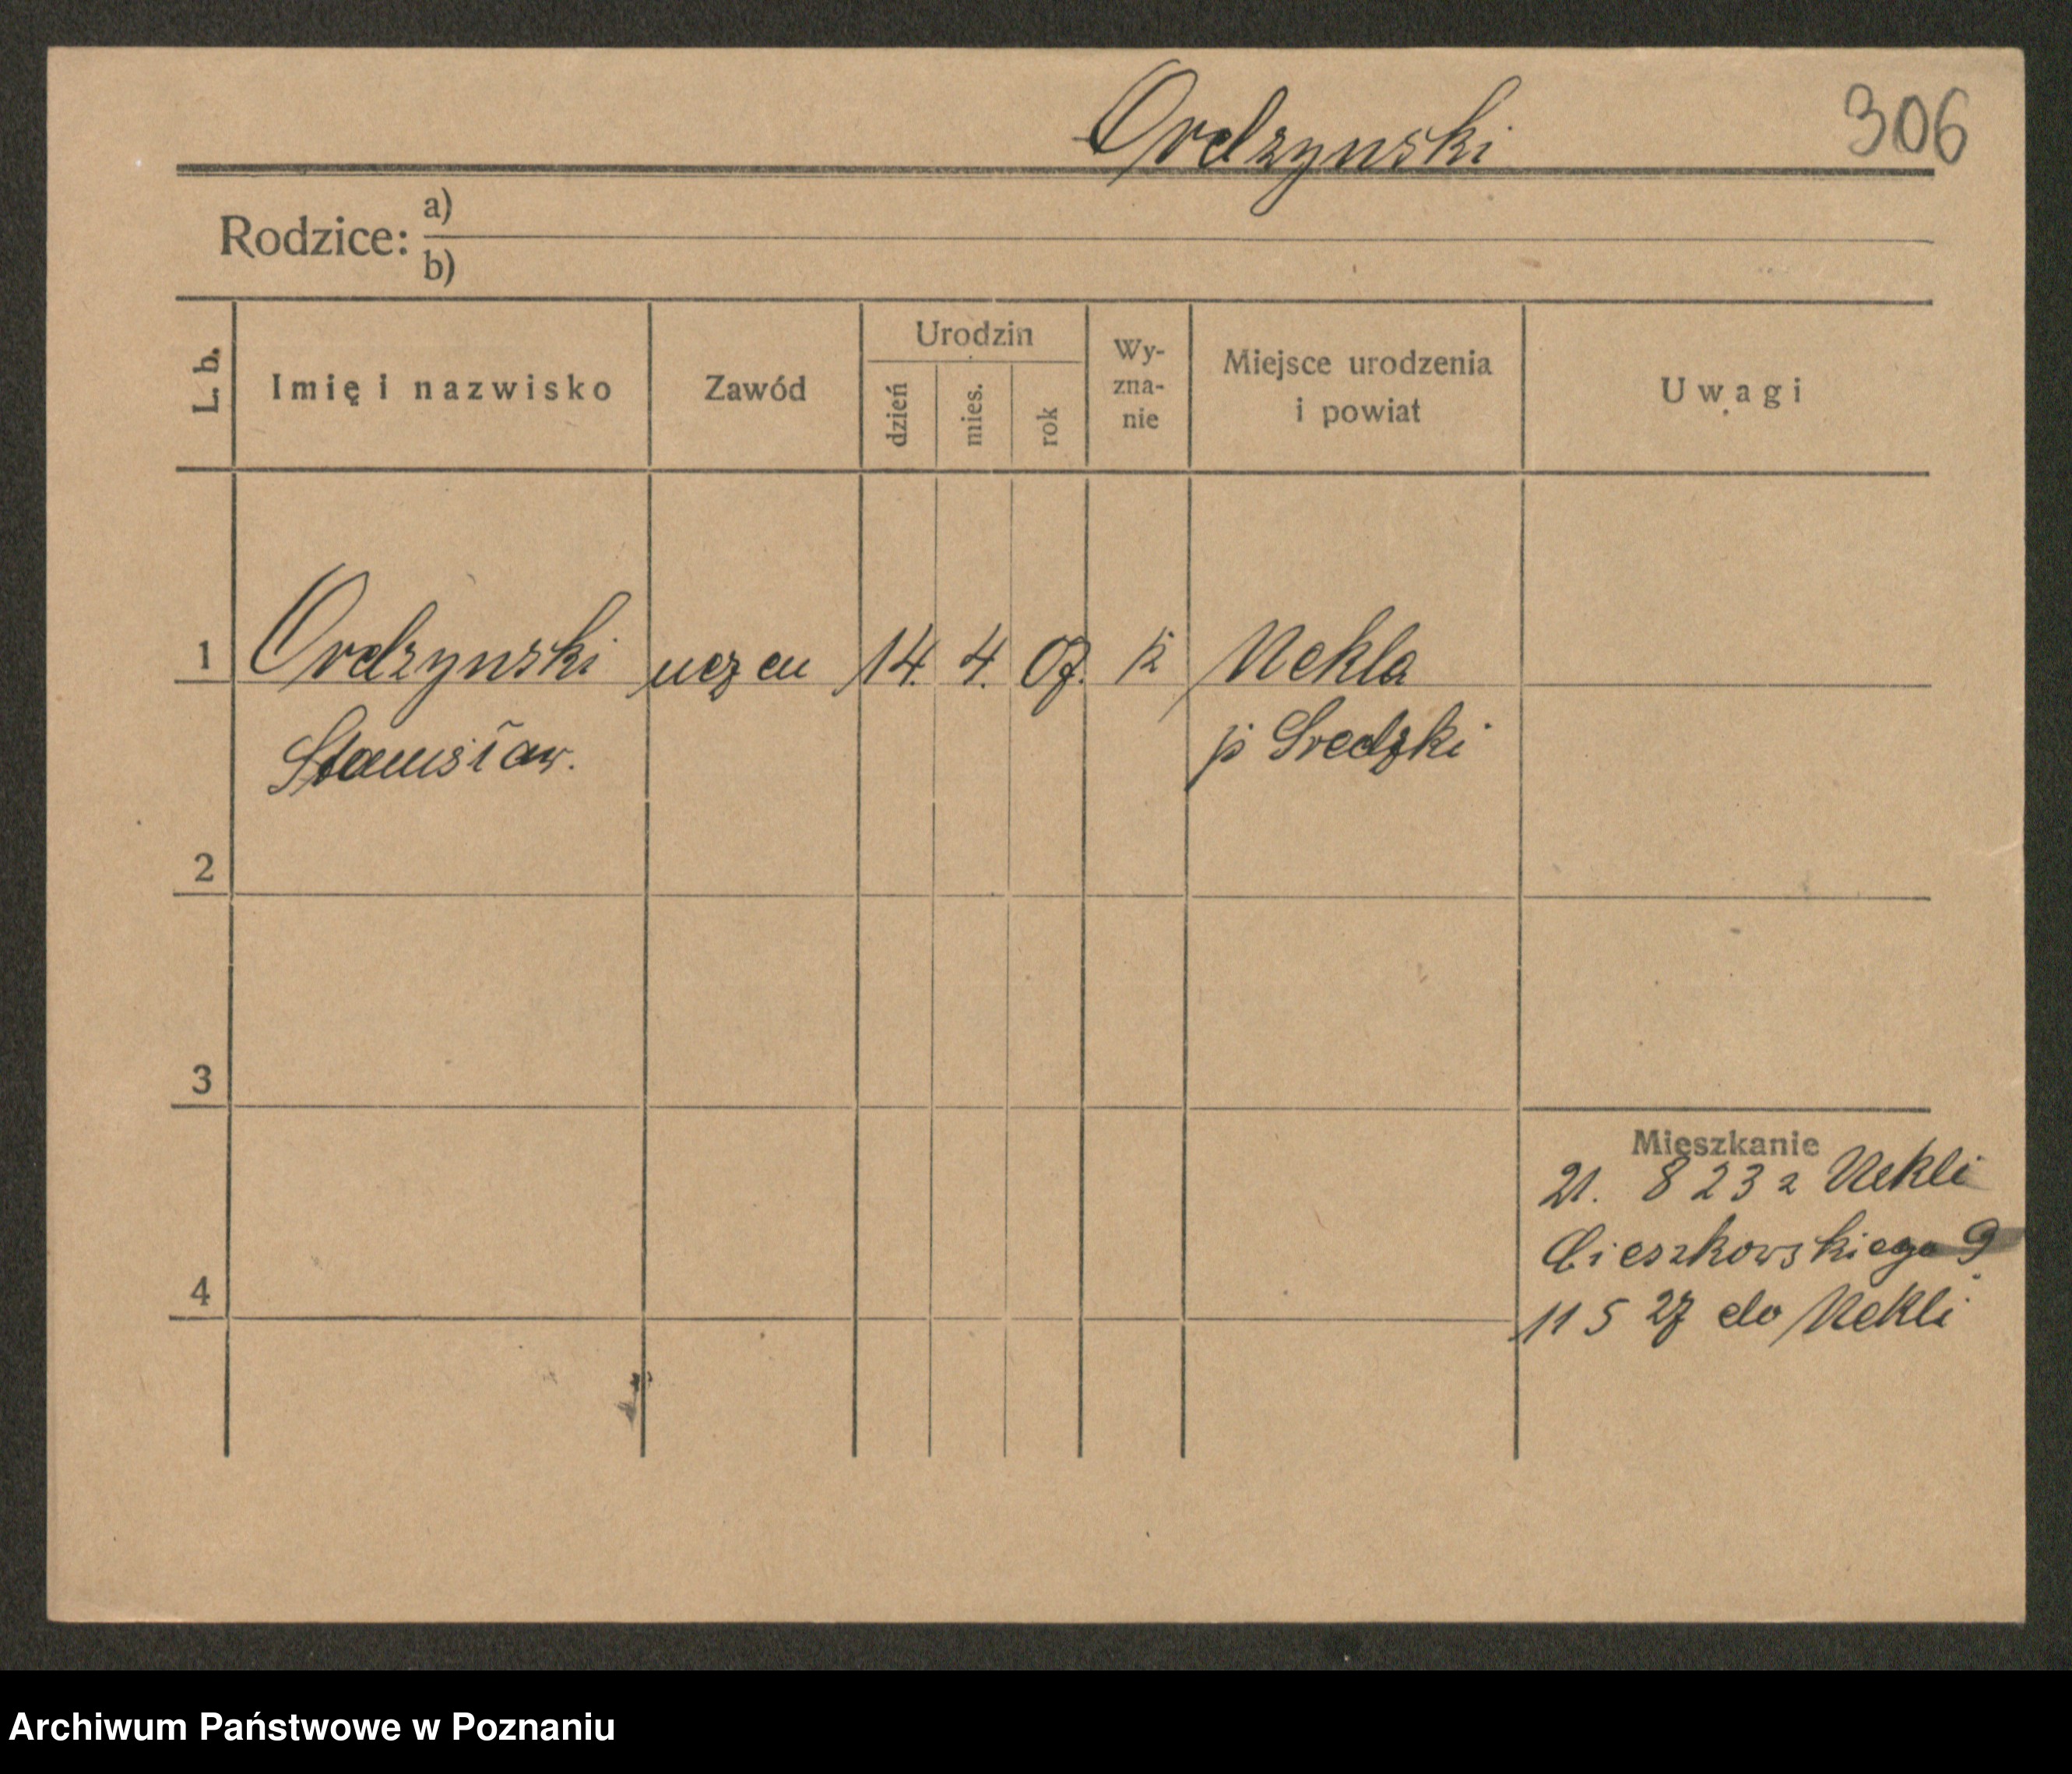 Ordzynski
306
Rodzice: a)
b)
L. b.
Imię i nazwisko
Zawód
Urodzin
dzień
mies.
rok
Wy-
zna-
nie
Miejsce urodzenia
i powiat
Uwagi
1 Ordzynski uczen 14. 4. 07. k Nekla
Stanisław. p Sredzki
2
3
4
Mieszkanie
21. 8 23 z Nekli
Cieszkowskiego 9
11 5 27 do Nekli
Archiwum Państwowe w Poznaniu